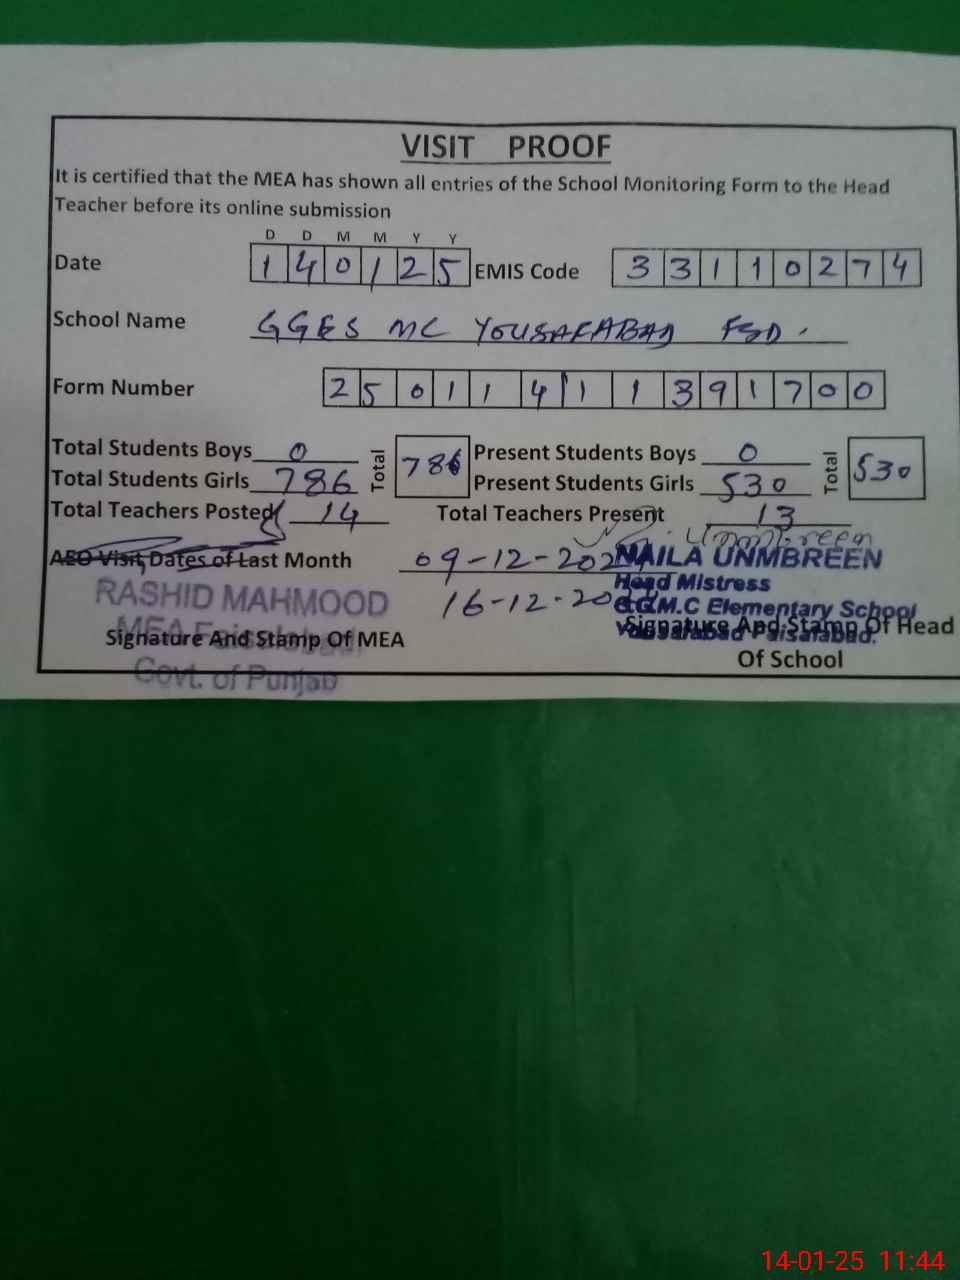 VISIT PROOF
It is certified that the MEA has shown all entries of the School Monitoring Form to the Head
Teacher before its online submission
D D M M Y Y
Date 1 4 0 1 2 5 EMIS Code 3 3 1 1 0 2 7 4
School Name GGES MC YOUSAFABAD FSD.
Form Number 2 5 0 1 1 4 1 1 3 9 1 7 0 0
Total Students Boys 0 Total 786 Present Students Boys 0 Total 530
Total Students Girls 786 Present Students Girls 530
Total Teachers Posted 14 Total Teachers Present 13
Unmbreen
AEO Visit Dates of Last Month 09-12-2024 NAILA UNMBREEN
RASHID MAHMOOD 16-12-20 Head Mistress
MEA Faisalabad, G.G.M.C Elementary School
Signature And Stamp Of MEA Yousafabad Faisalabad.
Govt. of Punjab Signature And Stamp Of Head
Of School
14-01-25 11:44